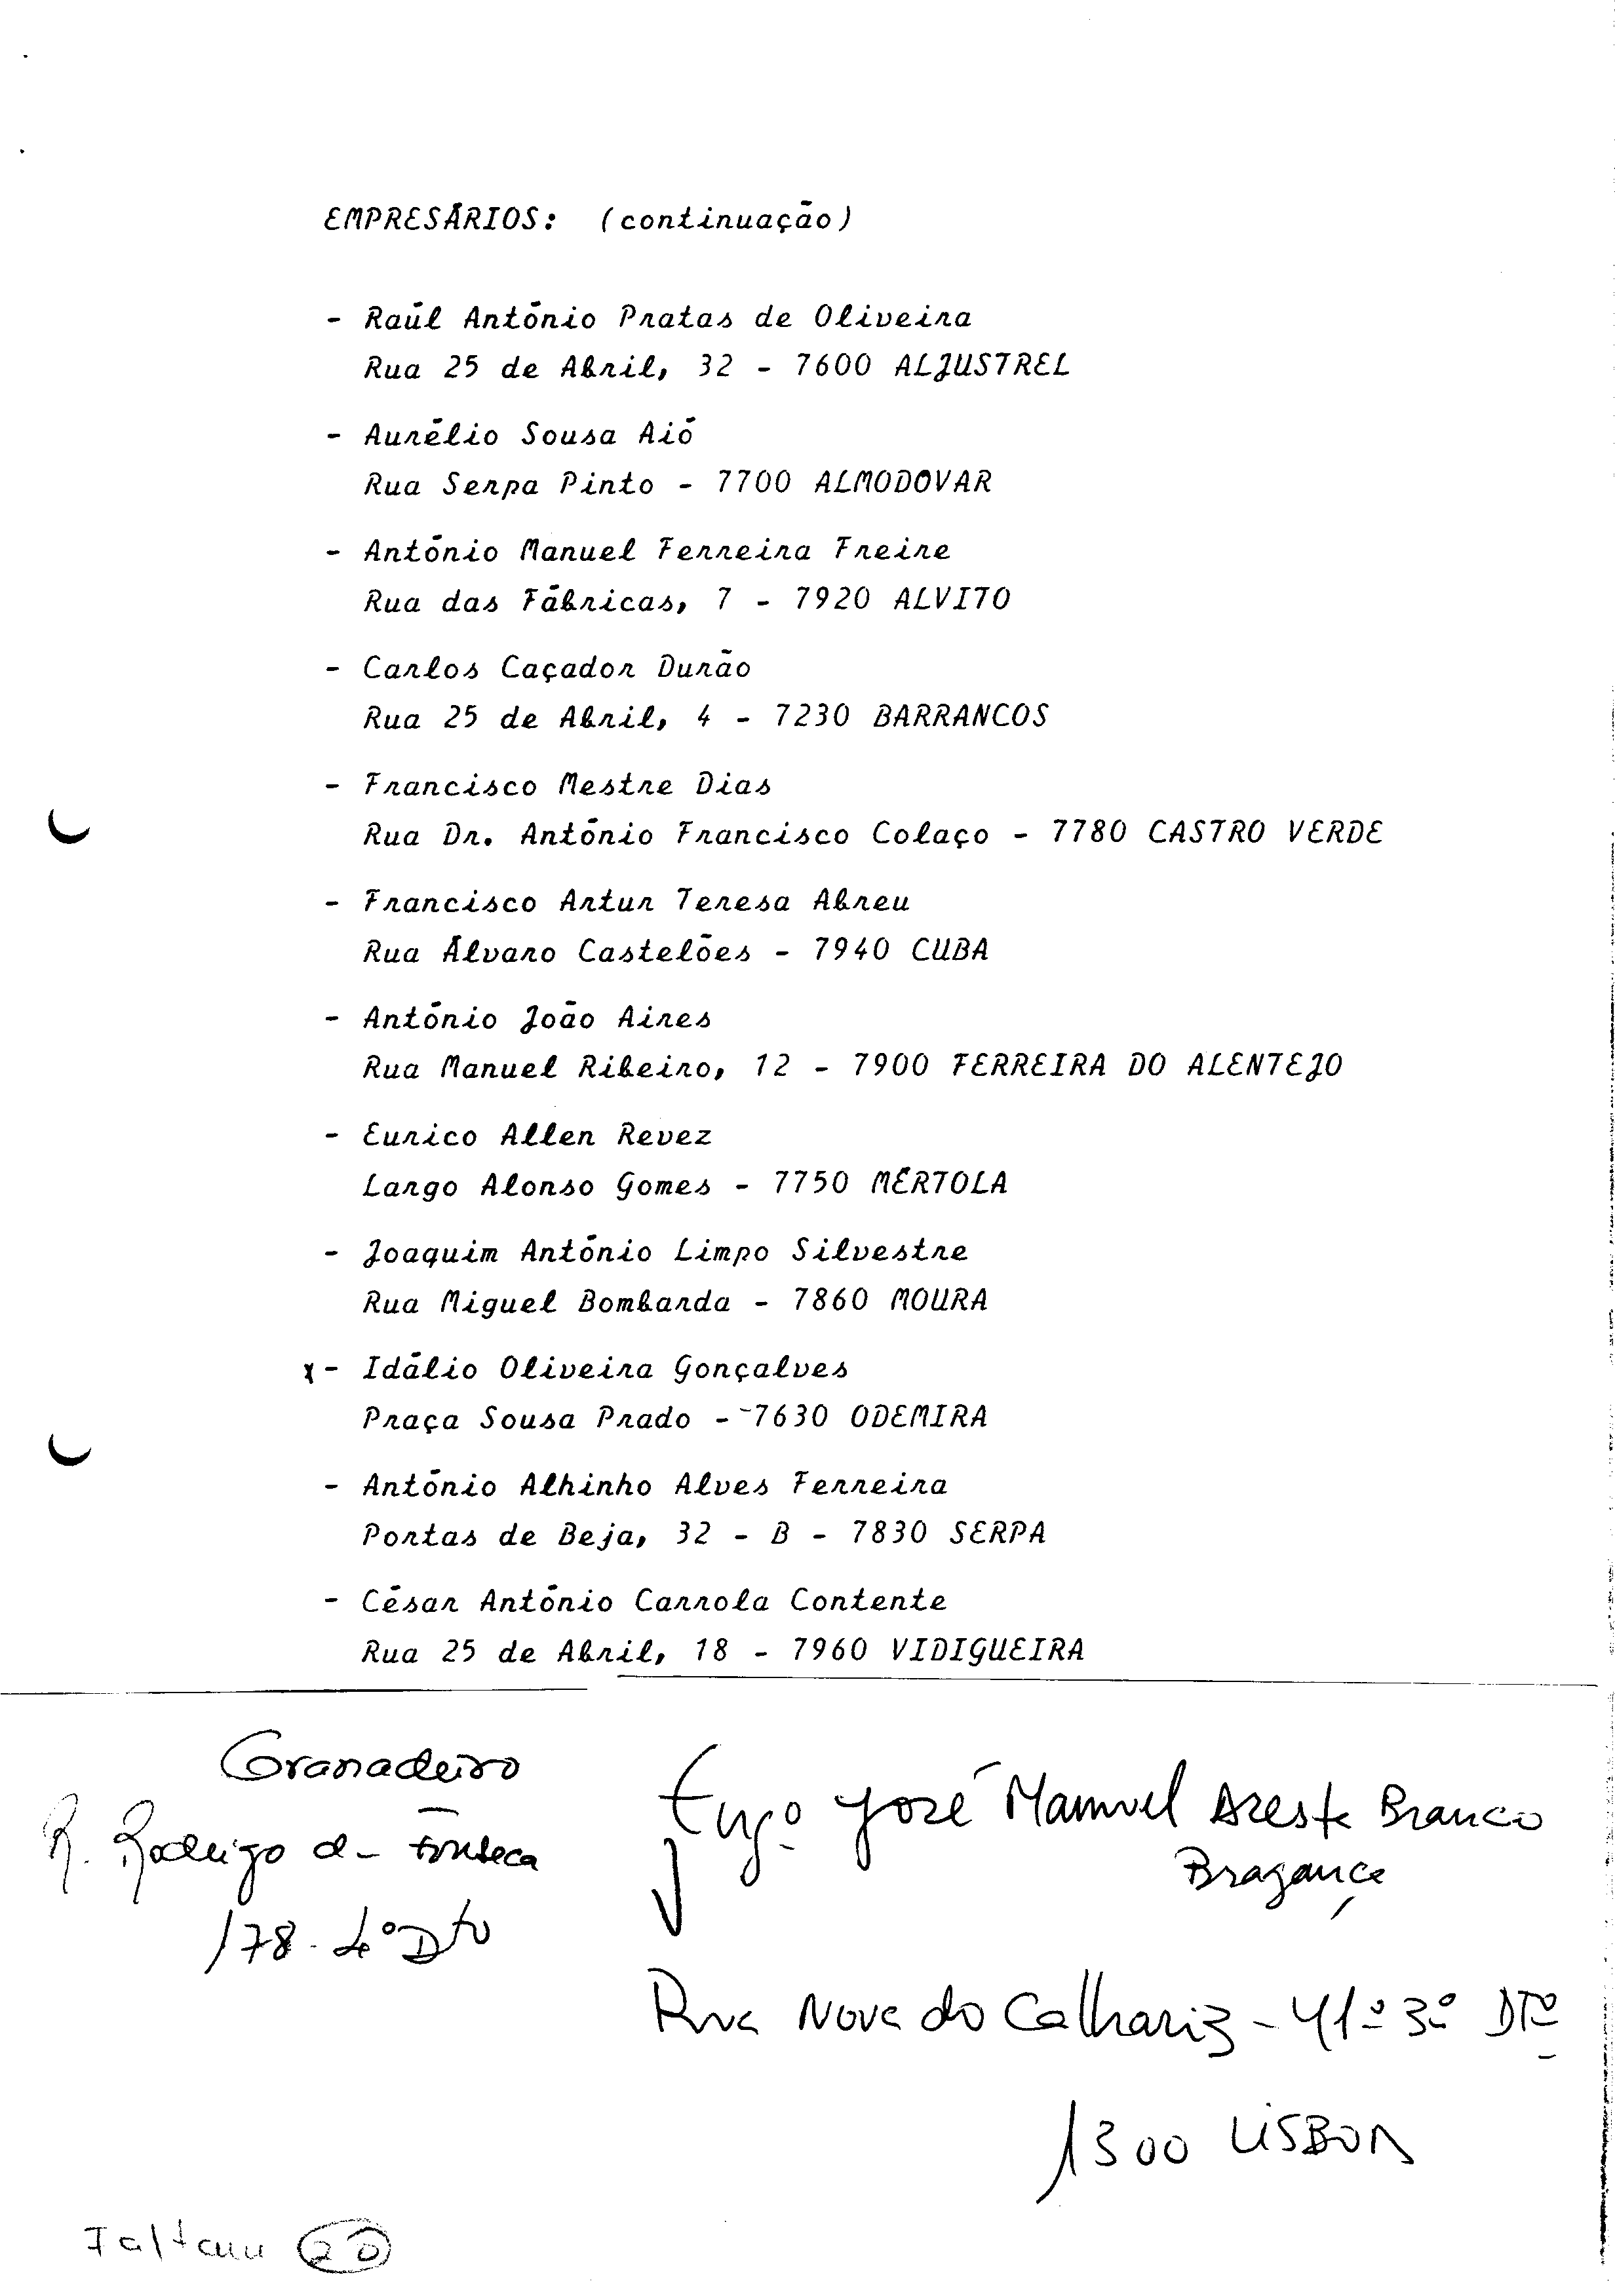 EMPRESÁRIOS: (continuação)
- Raúl António Pratas de Oliveira
Rua 25 de Abril, 32 - 7600 ALJUSTREL
- Aurélio Sousa Aió
Rua Serpa Pinto - 7700 ALMODOVAR
- António Manuel Ferreira Freire
Rua das Fábricas, 7 - 7920 ALVITO
- Carlos Caçador Durão
Rua 25 de Abril, 4 - 7230 BARRANCOS
- Francisco Mestre Dias
Rua Dr. António Francisco Colaço - 7780 CASTRO VERDE
- Francisco Artur Teresa Abreu
Rua Álvaro Castelões - 7940 CUBA
- António João Aires
Rua Manuel Ribeiro, 12 - 7900 FERREIRA DO ALENTEJO
- Eurico Allen Revez
Largo Alonso Gomes - 7750 MÉRTOLA
- Joaquim António Limpo Silvestre
Rua Miguel Bombarda - 7860 MOURA
x - Idálio Oliveira Gonçalves
Praça Sousa Prado - 7630 ODEMIRA
- António Alhinho Alves Ferreira
Portas de Beja, 32 - B - 7830 SERPA
- César António Carrola Contente
Rua 25 de Abril, 18 - 7960 VIDIGUEIRA
Granadeiro
R. Rodrigo da Fonseca
178 - 4º Dto
Engº José Manuel Branco
Bragança
Rua Nova do Calhariz - 41º 3º DTº
1300 LISBOA
Faltam 20